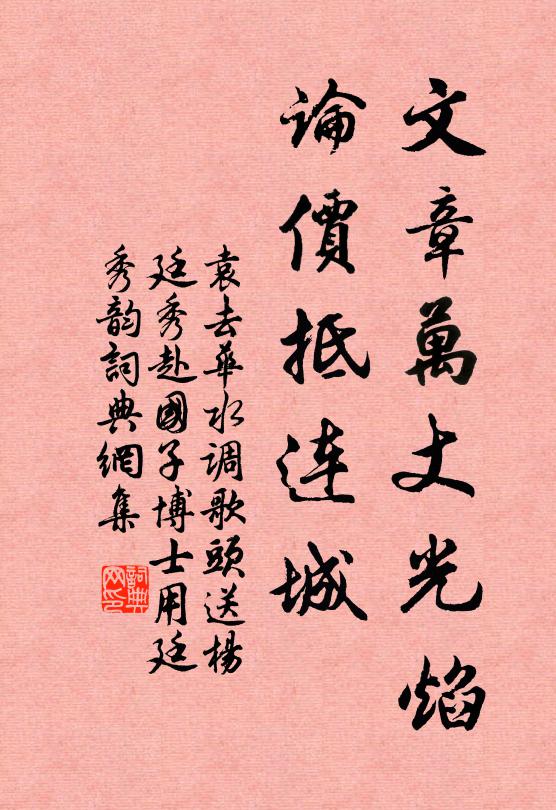 文章萬丈光焰
論價抵连城
袁去華水调歌頭送楊
廷秀赴國子博士用廷
秀韵詞典網集
詞典
网印